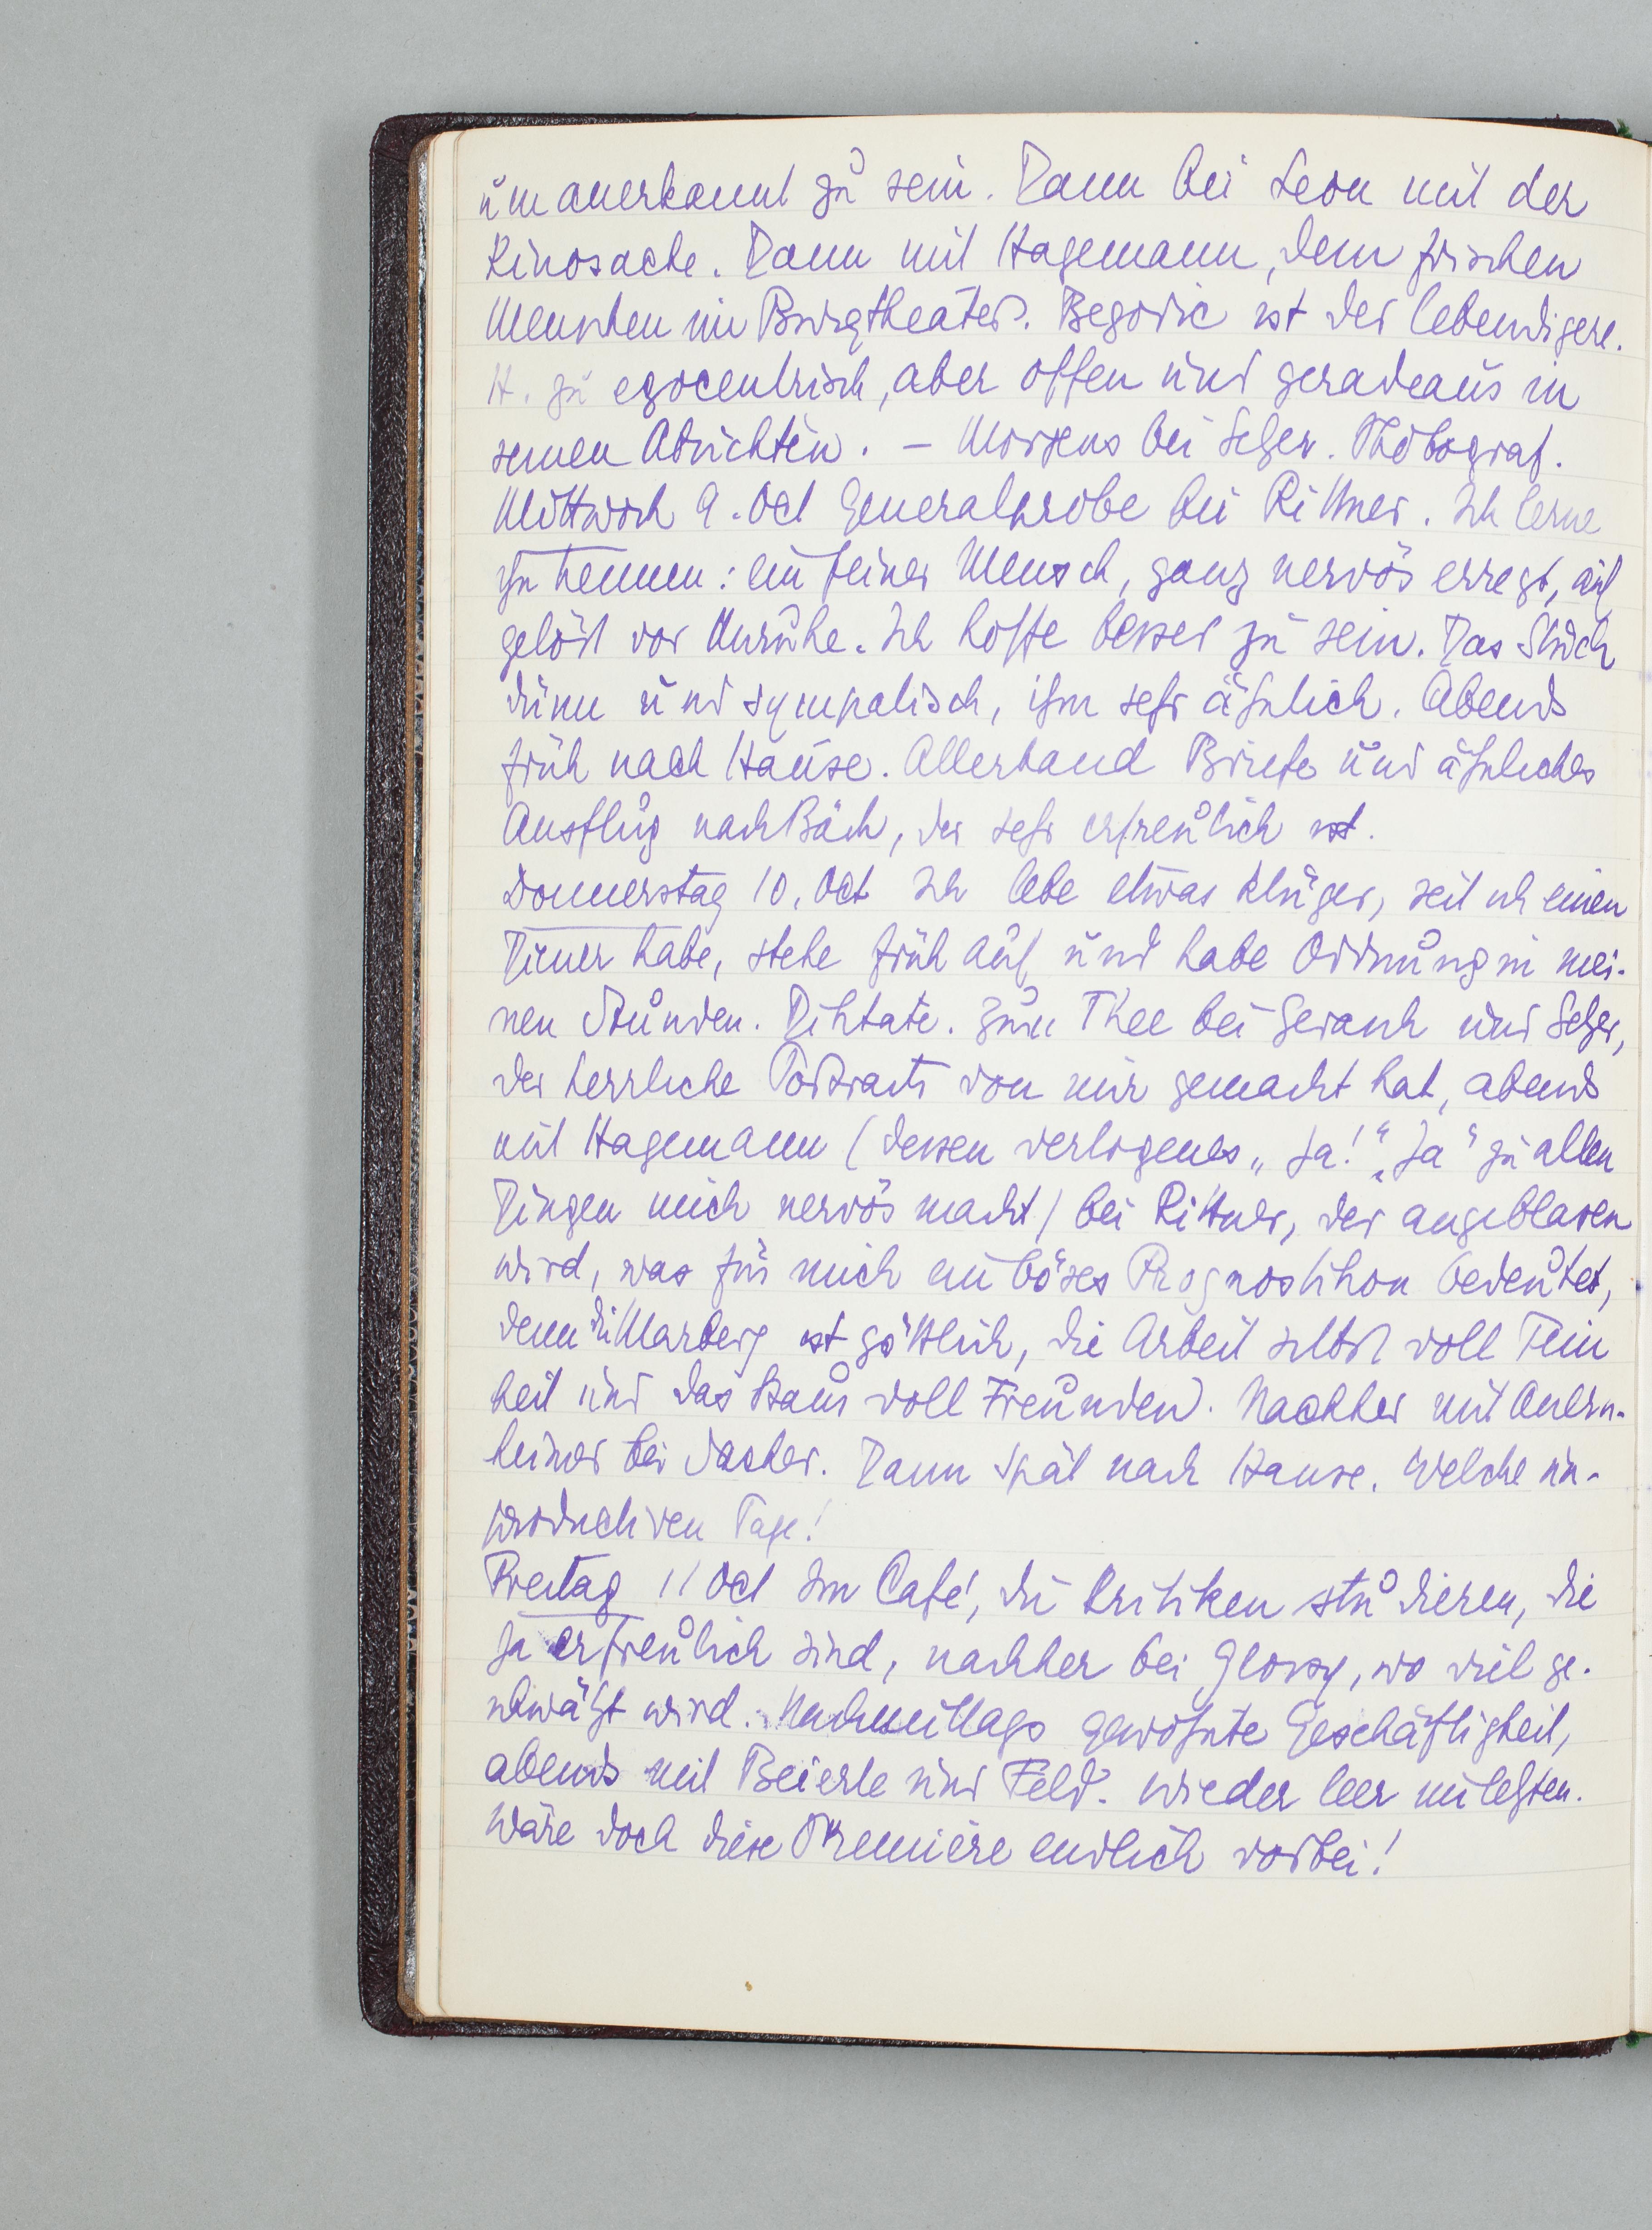 um anerkannt zu sein. Dann bei Leon mit der
Kinosache. Dann mit Hagemann, dem frischen
Menschen im Burgtheater. Begovic ist der lebendigere.
H. zu egocentrisch, aber offen und geradeaus in
seinen Absichten. – Morgens bei Setzer. Photograf.
Mittwoch 9. Oct Generalprobe bei Rittner. Ich lerne
ihn kennen: ein feiner Mensch, ganz nervös erregt, auf
gelöst vor Unruhe. Ich hoffe besser zu sein. Das Stück
dünn und sympatisch, ihm sehr ähnlich. Abends
früh nach Hause. Allerhand Briefe und ähnliches
Ausflug nach Bach, der sehr erfreulich ist.
Donnerstag 10. Oct Ich lebe etwas klüger, seit ich einen
Diener habe, stehe früh auf und habe Ordnung in mei-
nen Stunden. Diktate. Zum Thee bei und Setzer,
der herrliche Portraits von mir gemacht hat, abends
mit Hagemann (dessen verlogenes „Ja!“ „Ja“ zu allen
Dingen mich nervös macht) bei Rittner, der angeblasen
wird, was für mich ein böses Prognostikon bedeutet,
denn die Marberg ist göttlich, die Arbeit selbst voll Fein
heit und das Haus voll Freunden. Nachher mit Auern-
heimer bei Sacher. Dann spät nach Hause. Welche un-
productiven Tage!
Freitag 11 Oct Im Café, die Kritiken studieren, die
ja erfreulich sind, nachher bei Glossy, wo viel ge-
schwätzt wird. Nachmittags gewohnte Geschäftigkeit,
abends mit Beierle und Feld. Wieder leer im letzten.
Wäre doch diese Première endlich vorbei!